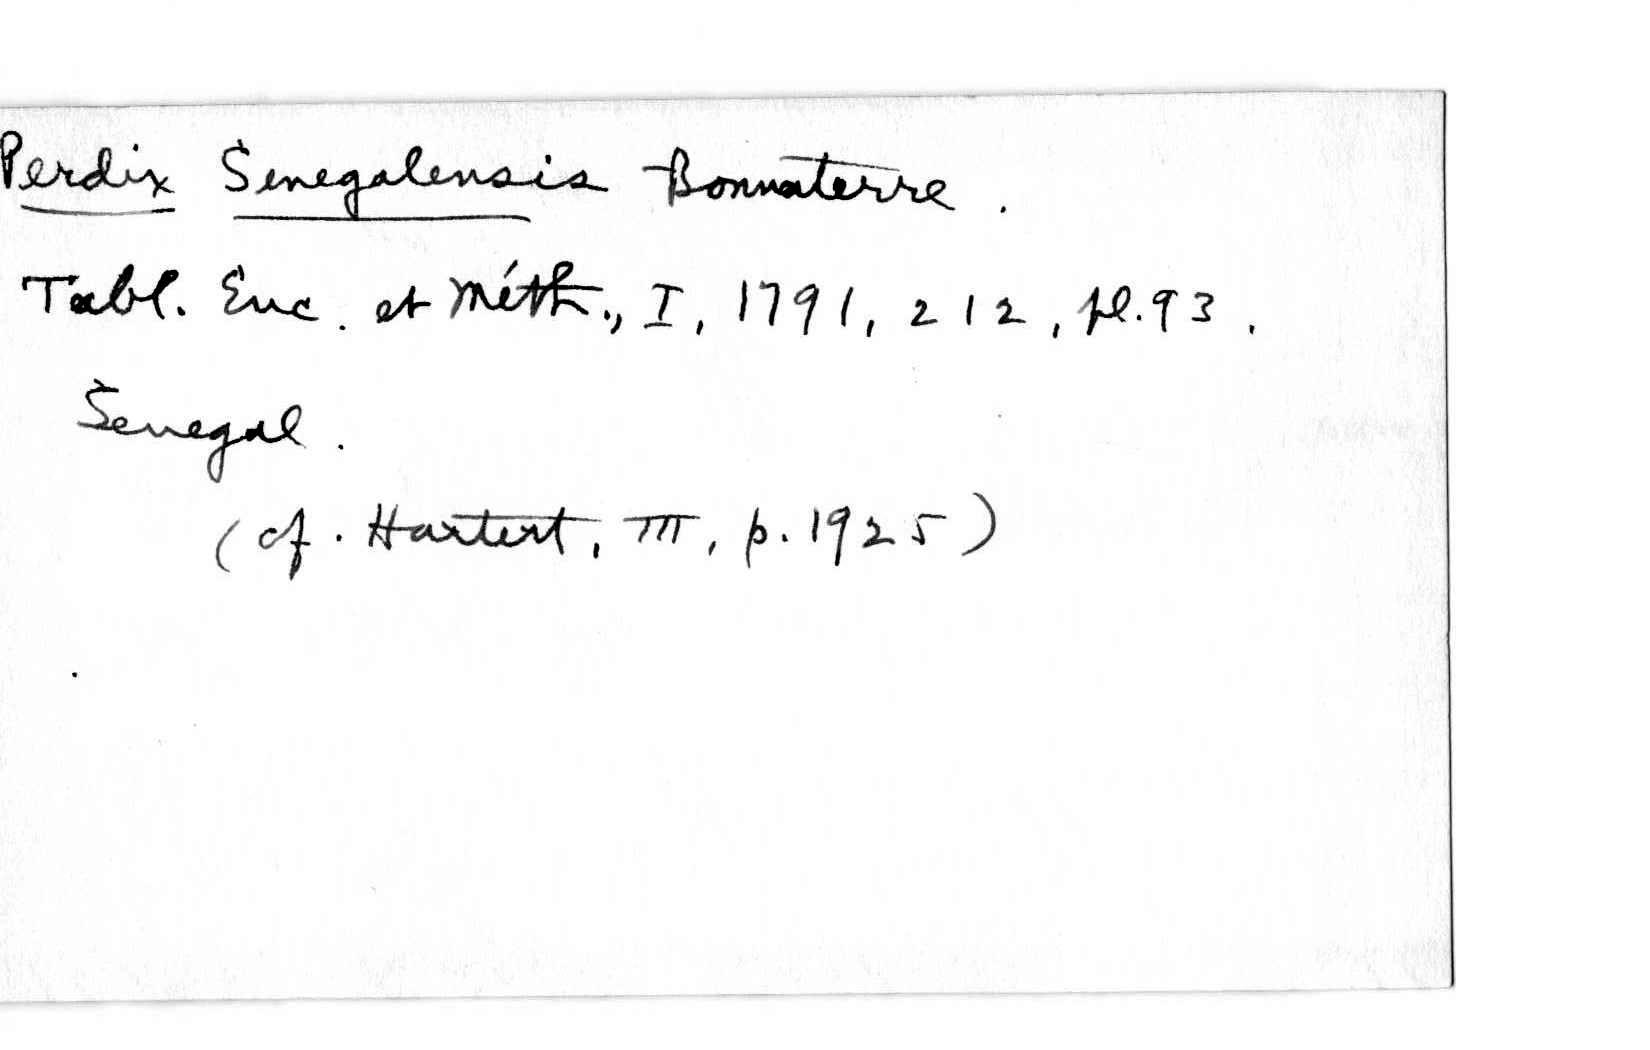 Perdix Senegalensis Bonnaterre.
Tabl. Enc. et Méth., I, 1791, 212, pl. 93.
Senegal.
(cf. Hartert, III, p. 1925)